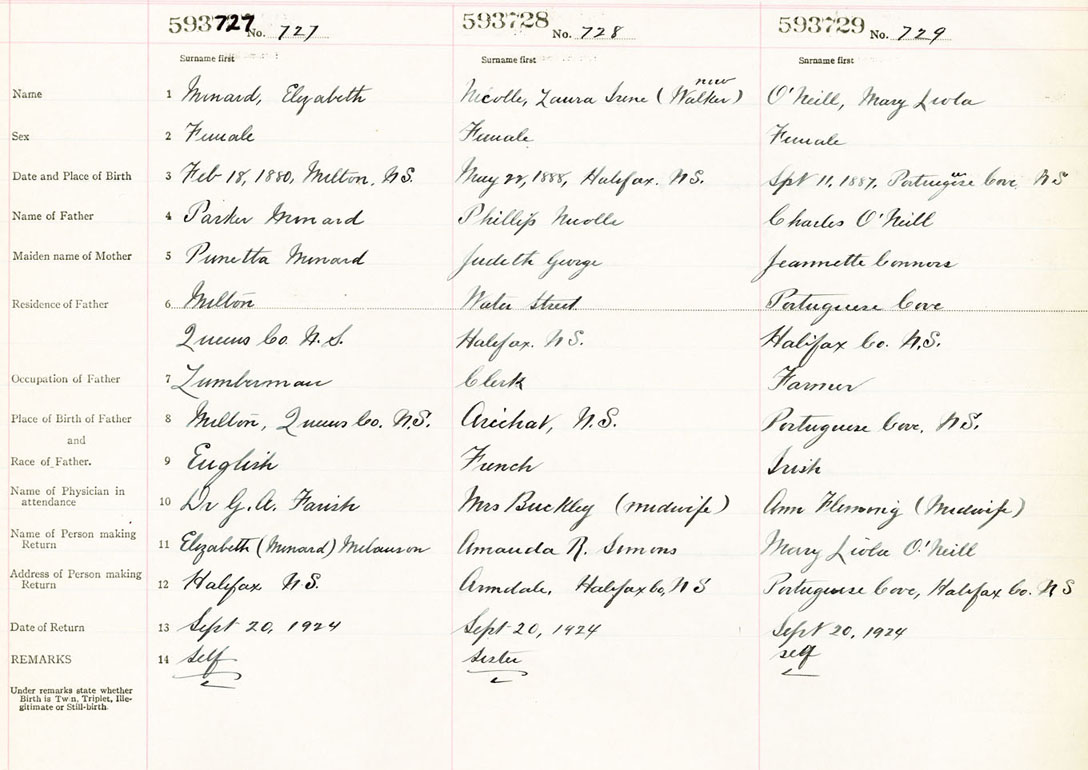 593727 No. 727 593728 No. 728 593729 No. 729
Surname first Surname first Surname first
now
Name 1 Minard, Elizabeth Nicolle, Laura Irene (Walker) O'Neill, Mary Liola
Sex 2 Female Female Female
Date and Place of Birth 3 Feb 18, 1880, Milton, N.S. May 1888, Halifax. N.S. Spt 11, 1887, Portuguese Cove N S
Name of Father 4 Parker Minard Phillip Nicolle Charles O'Neill
Maiden name of Mother 5 Minard Judeth George Jeannette Connors
Residence of Father 6 Milton Water Street Portuguese Cove
Queens Co. N.S. Halifax. N S. Halifax Co. N.S.
Occupation of Father 7 Lumberman Clerk Farmer
Place of Birth of Father 8 Milton, Queens Co. N.S. Arichat, N.S. Portuguese Cove, N.S.
and
Race of Father. 9 English French Irish
Name of Physician in
attendance 10 Dr G. A. Farish Mrs Buckley (midwife) Ann Fleming (Midwife)
Name of Person making
Return 11 Elizabeth (Minard) Amanda R. Simons Mary Liola O'Neill
Address of Person making
Return 12 Halifax N S. Armdale, Halifax Co, N S Portuguese Cove, Halifax Co. N S
Date of Return 13 Sept 20, 1924 Sept 20, 1924 Sept 20, 1924
REMARKS 14 self sister self
Under remarks state whether
Birth is Twin, Triplet, Ille-
gitimate or Still-birth.